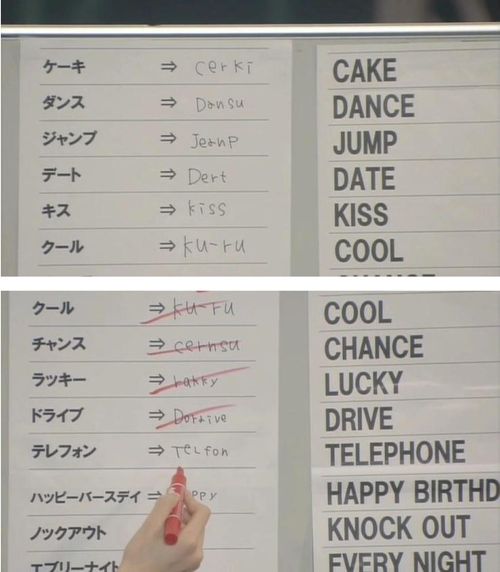 ケーキ ⇒ cerki CAKE
ダンス ⇒ Dansu DANCE
ジャンプ ⇒ Jeanp JUMP
デート ⇒ Dert DATE
キス ⇒ kiss KISS
クール ⇒ ku-ru COOL
クール ⇒ ku-ru COOL
チャンス ⇒ cernsu CHANCE
ラッキー ⇒ rakky LUCKY
ドライブ ⇒ DRIVE
テレフォン ⇒ Telfon TELEPHONE
ハッピーバースデイ ⇒ ppy HAPPY BIRTHD
ノックアウト KNOCK OUT
エブリーナイト EVERY NIGHT